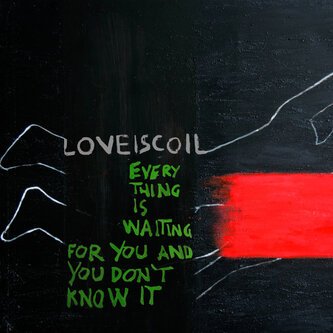 LOVEISCOIL
EVERY
THING
IS
WAITING
FOR YOU AND
YOU DON'T
KNOW IT